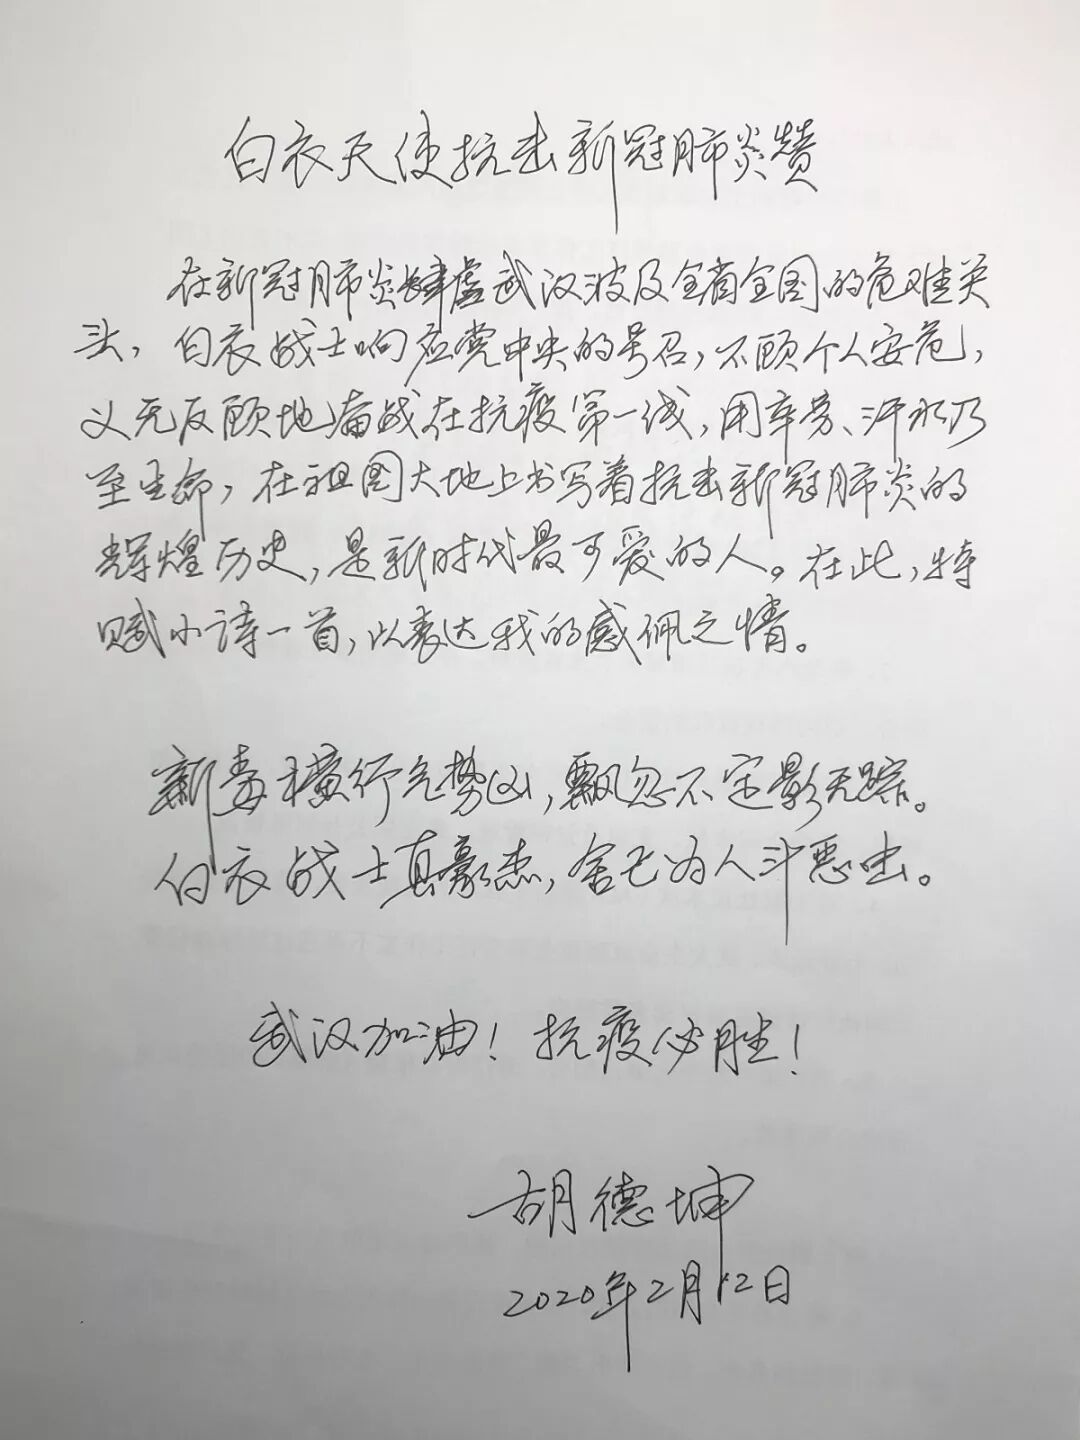 白衣天使抗击新冠肺炎赞
在新冠肺炎肆虐武汉波及全省全国的危难关
头，白衣战士响应党中央的号召，不顾个人安危，
义无反顾地奋战在抗疫第一线，用辛劳、汗水乃
至生命，在祖国大地上书写着抗击新冠肺炎的
辉煌历史，是新时代最可爱的人。在此，特
赋小诗一首，以表达我的感佩之情。
新毒横行气势凶，飘忽不定影无踪。
白衣战士真豪杰，舍己为人斗恶虫。
武汉加油！抗疫必胜！
胡德坤
2020年2月12日